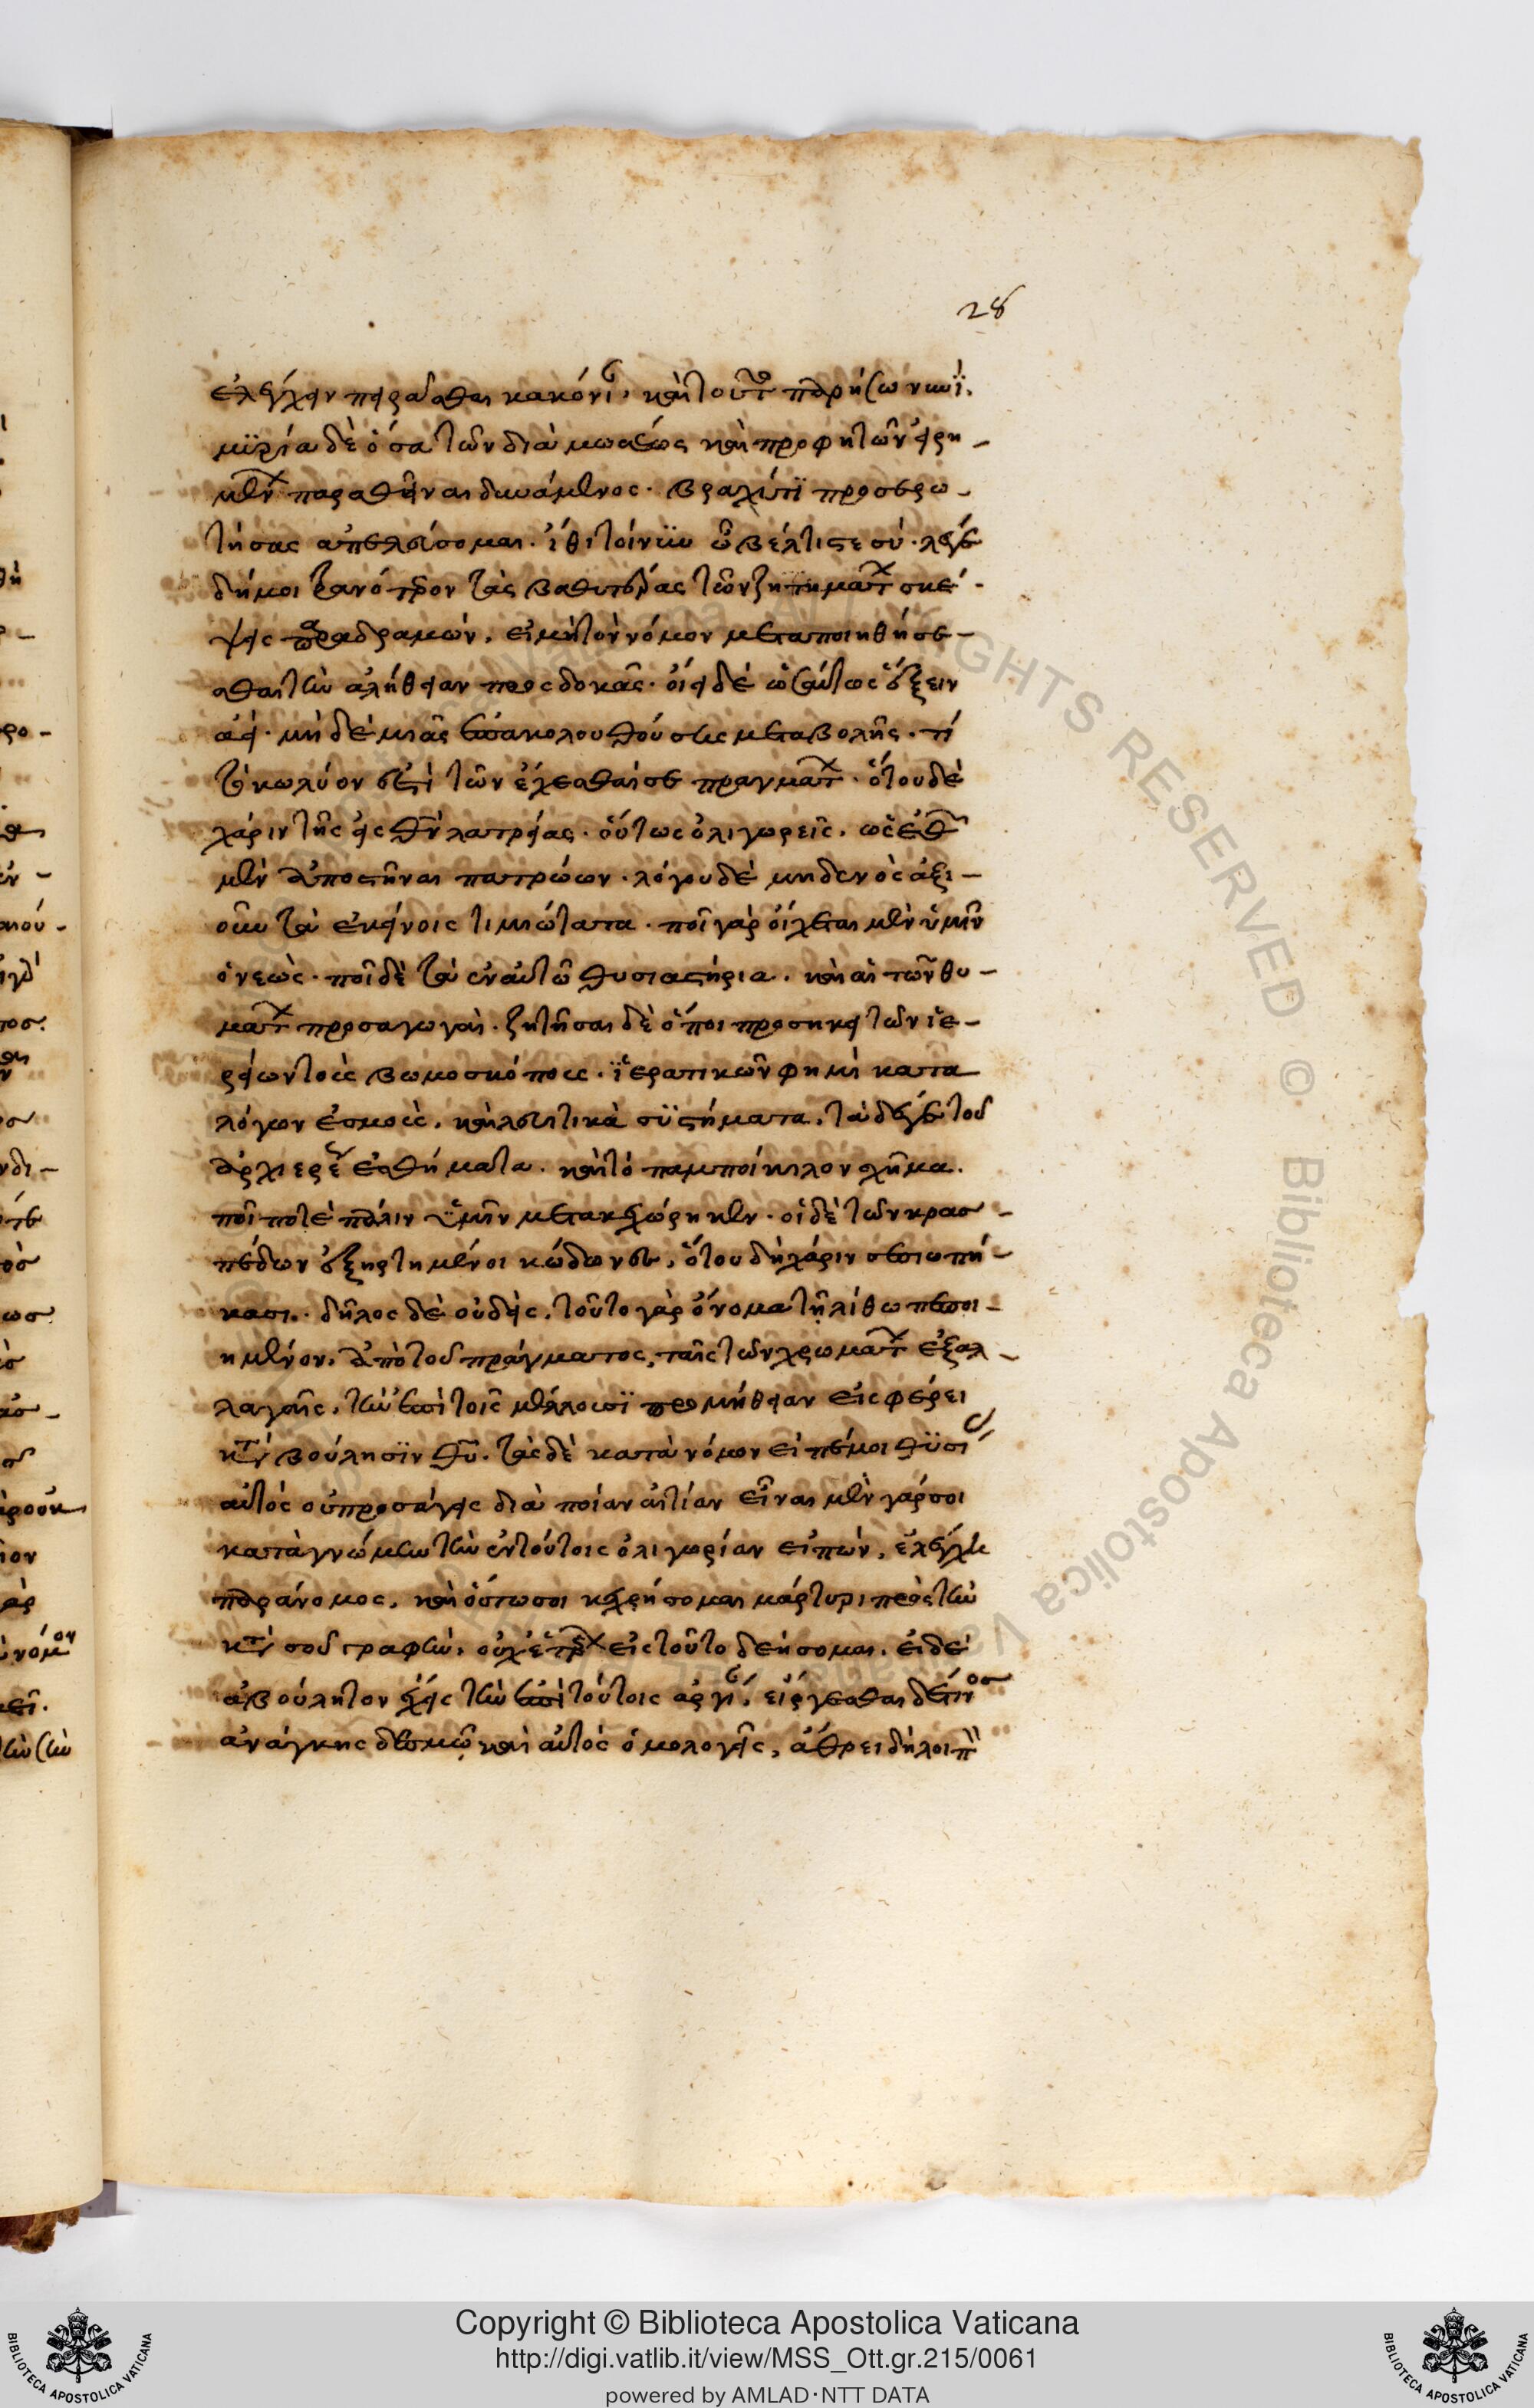 28
ἐλέγχειν πειρᾶσθαι κακόνοι, καὶ τοῦτο παρήσω νυνΐ.
μϋρία δὲ ὅσα τῶν διὰ μωσέως καὶ προφητῶν εἰρη-
μένων παραθεῖναι δυνάμενος. βραχύ τϊ προσερω-
τήσας ἀπελεύσομαι. ἴθι τοίνϋν ὦ βέλτιστε σύ. λέγε
δή μοι σαφέστερον τὰς βαθυτέρας τῶν ζητημάτων σκέ-
ψεις παραδραμών, εἰ μὴ τὸν νόμον μεταποιηθήσε-
σθαι τὴν ἀλήθειαν προσδοκᾶς. οἴει δὲ ὡσαύτως ἕξειν
ἀεί. μηδεμιᾶς ἐπακολουθούσης μεταβολῆς. τί
τὸ κωλύον ἐστὶ τῶν ἔχεσθαί σε πραγμάτων. ὅτου δὲ
χάριν τῆς εἰς θεὸν λατρείας. οὕτως ὀλιγωρεῖς. ὡς ἐθῶν
μὲν ἀποστῆναι πατρώων. λόγου δὲ μηδενὸς ἀξι-
οῦν τὰ ἐκείνοις τιμιώτατα. ποῖ γὰρ οἴχεται μὲν ὑμῖν
ὁ νεώς. ποῖ δὲ τὰ ἐν αὐτῷ θυσιαστήρια. καὶ αἱ τῶν θυ-
μάτων προσαγωγαί. ζητῆσαι δὲ ὅποι προσήκει τῶν ἱε-
ρείων τοὺς βωμοσκόπους. ϊερατικῶν φημὶ κατα
λόγων ἑσμοὺς. καὶ λευιτικὰ σϋστήματα. τὰ δέ γε τοῦ
ἀρχιερέως ἐσθήματα. καὶ τὸ παμποίκιλον σχῆμα.
ποῖ ποτὲ πάλιν ὑμῖν μετακεχώρηκεν. οἱ δὲ τῶν κρασ-
πέδων ἐξηρτημένοι κώδωνες, ὅτου δὴ χάριν σεσιωπή-
κασι. δῆλος δὲ οὐδεὶς. τοῦτο γὰρ ὄνομα τῇ λίθω πεποι-
ημένον. ἀπὸ τοῦ πράγματος, ταῖς τῶν χρωμάτων ἐξαλ-
λαγαῖς. τὴν ἐπὶ τοῖς μέλλουσϊ προμήθειαν εἰσφέρει
κατὰ βούλησϊν θεοῦ. τὰς δὲ κατὰ νόμον εἰπέ μοι θϋσίας
αὐτὸς οὐ προσάγεις διὰ ποίαν αἰτίαν εἶναι μὲν γάρ σοι
κατὰ γνώμην τὴν ἐν τούτοις ὀλιγωρίαν εἰπών, ἐλέγχῃ
παράνομος, καὶ ὅστωσοι κεχρήσομαι μάρτυρι πρὸς τὴν
κατὰ σοῦ γραφὴν. οὐχ ἑτέρων εἰς τοῦτο δεήσομαι. εἰ δὲ
ἀβούλητον ἔχεις τὴν ἐπὶ τούτοις ἀργίαν, εἴργεσθαι δέ τινος
ἀνάγκης δεσμῷ καὶ αὐτὸς ὁμολογεῖς, ἄθρει δὴ λοιπὸν
Copyright © Biblioteca Apostolica Vaticana
http://digi.vatlib.it/view/MSS_Ott.gr.215/0061
powered by AMLAD·NTT DATA